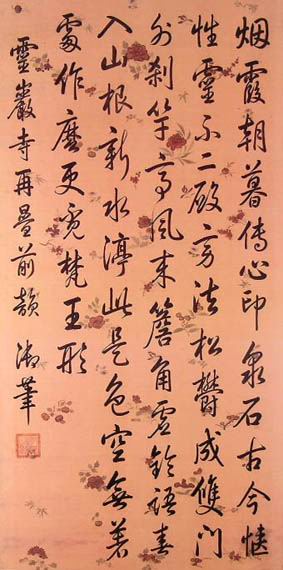 烟霞朝暮傳心印泉石古今愜
性靈不二殿方法松鬱成雙門
外刹竿亭風来簷角虛鈴語春
入山根新水渟此是色空無著
處作麽更覓梵王形
靈巖寺再疊前韻 御筆